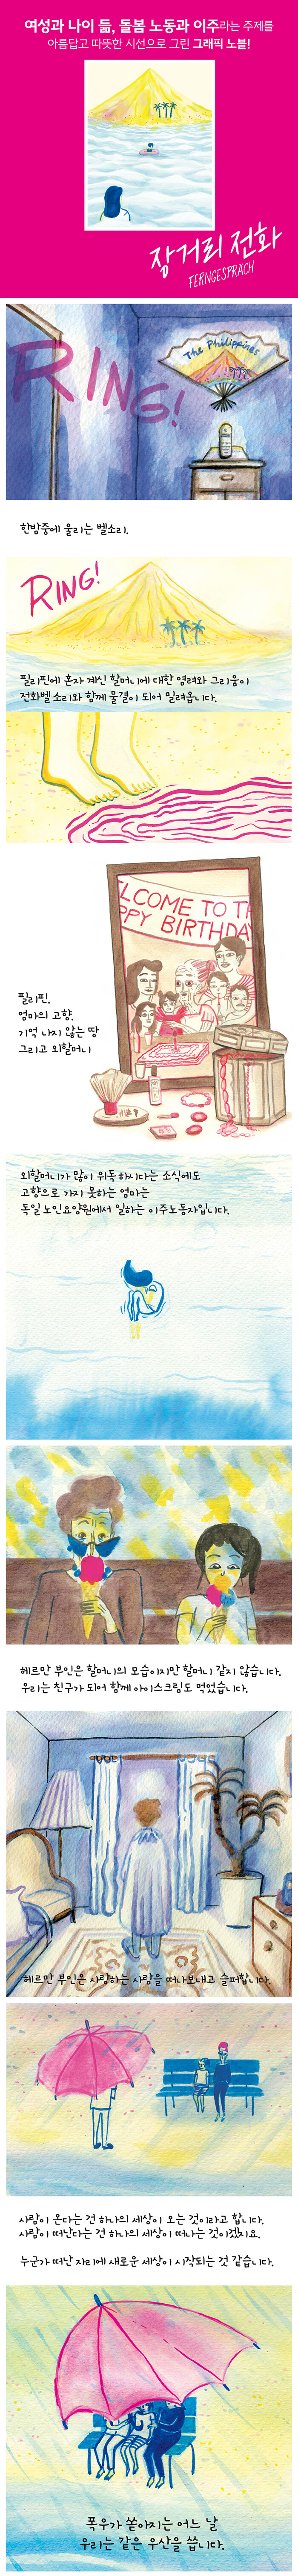 여성과 나이 듦, 돌봄 노동과 이주라는 주제를
아름답고 따뜻한 시선으로 그린 그래픽 노블!
장거리 전화
FERNGESPRÄCH
RING!
The Philippines
한밤중에 울리는 벨소리.
RING!
필리핀에 혼자 계신 할머니에 대한 염려와 그리움이
전화벨 소리와 함께 물결이 되어 밀려옵니다.
LCOME TO TH
PPY BIRTHDAY
필리핀.
엄마의 고향.
기억 나지 않는 땅
그리고 외할머니
외할머니가 많이 위독하시다는 소식에도
고향으로 가지 못하는 엄마는
독일 노인요양원에서 일하는 이주노동자입니다.
헤르만 부인은 할머니의 모습이지만 할머니 같지 않습니다.
우리는 친구가 되어 함께 아이스크림도 먹었습니다.
헤르만 부인은 사랑하는 사람을 떠나보내고 슬퍼합니다.
사람이 온다는 건 하나의 세상이 오는 것이라고 합니다.
사람이 떠난다는 건 하나의 세상이 떠나는 것이겠지요.
누군가 떠난 자리에 새로운 세상이 시작되는 것 같습니다.
폭우가 쏟아지는 어느 날
우리는 같은 우산을 씁니다.